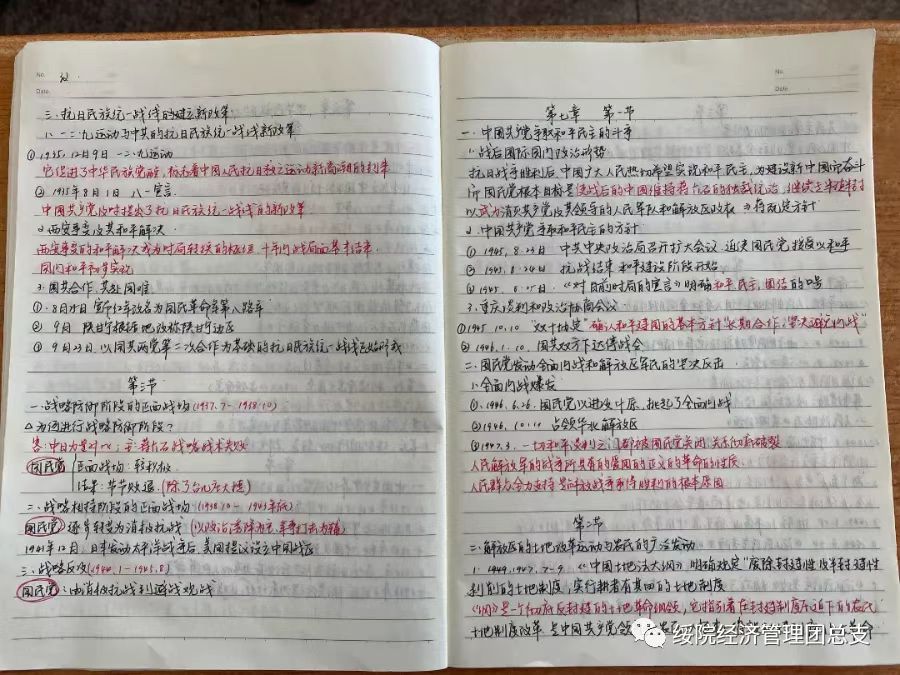 No.
Date.
三、抗日民族统一战线的建立新政策
1、一二·九运动与中共的抗日民族统一战线新政策
① 1935.12月9日 一二·九运动
它促进了中华民族觉醒,标志着中国人民抗日救亡运动新高潮的到来
② 1935年8月1日 八一宣言
中国共产党及时提出了抗日民族统一战线的新政策
2、西安事变及其和平解决
西安事变的和平解决成为时局转换的枢纽,十年内战局面基本结束
国内和平初步实现
3、国共合作,共赴国难
① 8月25日 宣布红军改名为国民革命军第八路军
② 9月 陕甘宁根据地改称陕甘宁边区
③ 9月23日,以国共两党第二次合作为基础的抗日民族统一战线
第三节
一、战略防御阶段的正面战场(1937.7-1938.10)
△为何进行战略防御阶段?
答:中日力量对比;
国民党
正面战场:较积极
结果:节节败退(除了台儿庄大捷)
二、战略相持阶段的正面战场(1938.10-1943年底)
国民党 逐步转变为消极抗战(以政治
1941年12月,日军发动太平洋战争后,美国提议设立中国战区
三、战略反攻(1944.1-1945.8)
国民党:由消极抗战到避战观战
No.
Date.
第七章 第一节
一、中国共产党争取和平民主的斗争
1、战后国际国内政治形势
抗日战争胜利后,中国广大人民热切希望实现和平民主,为建设新中国而奋斗
国民党根本目标是使战后的中国维持蒋介石的独裁统治,继续走
以武力消灭共产党及其领导的人民军队和解放区政权 →既定方针
2、中国共产党争取和平民主的方针
① 1945.8.23日 中共中央政治局召开扩大会议
② 1945.8.24日 抗战结束 和平建设阶段开始
③ 1945.8.25日 《对目前时局的宣言》明确和平,民主,团结的口号
3、重庆谈判和政治协商会议
① 1945.10.10 "双十协定" 确认和平建国的基本方针"长期合作,坚决避免内战"
② 1946.1.10. 国共双方下达停战令
二、国民党发动全面内战和解放区军民的坚决反击
1、全面内战爆发
① 1946.6.26. 国民党以进攻中原,挑起了全面内战
② 1946.10.10 占领华北解放区
③ 1947.3. 一切和平谈判之门都被国民党关闭,关系彻底破裂
人民解放军的战争所具有的爱国的正义的革命的性质
人民群众
第二节
二、解放区的土地改革运动与农民的广泛发动
1. 1947.7-9. 《中国土地法大纲》明确规定"废除封建性及半封建性
剥削的土地制度,实行耕者有其田的土地制度
是一个彻底反封建的土地革命纲领,它指引着在封建制度压迫下的农民
土地制度改革 是中国共产党领
绥院经济管理团总支